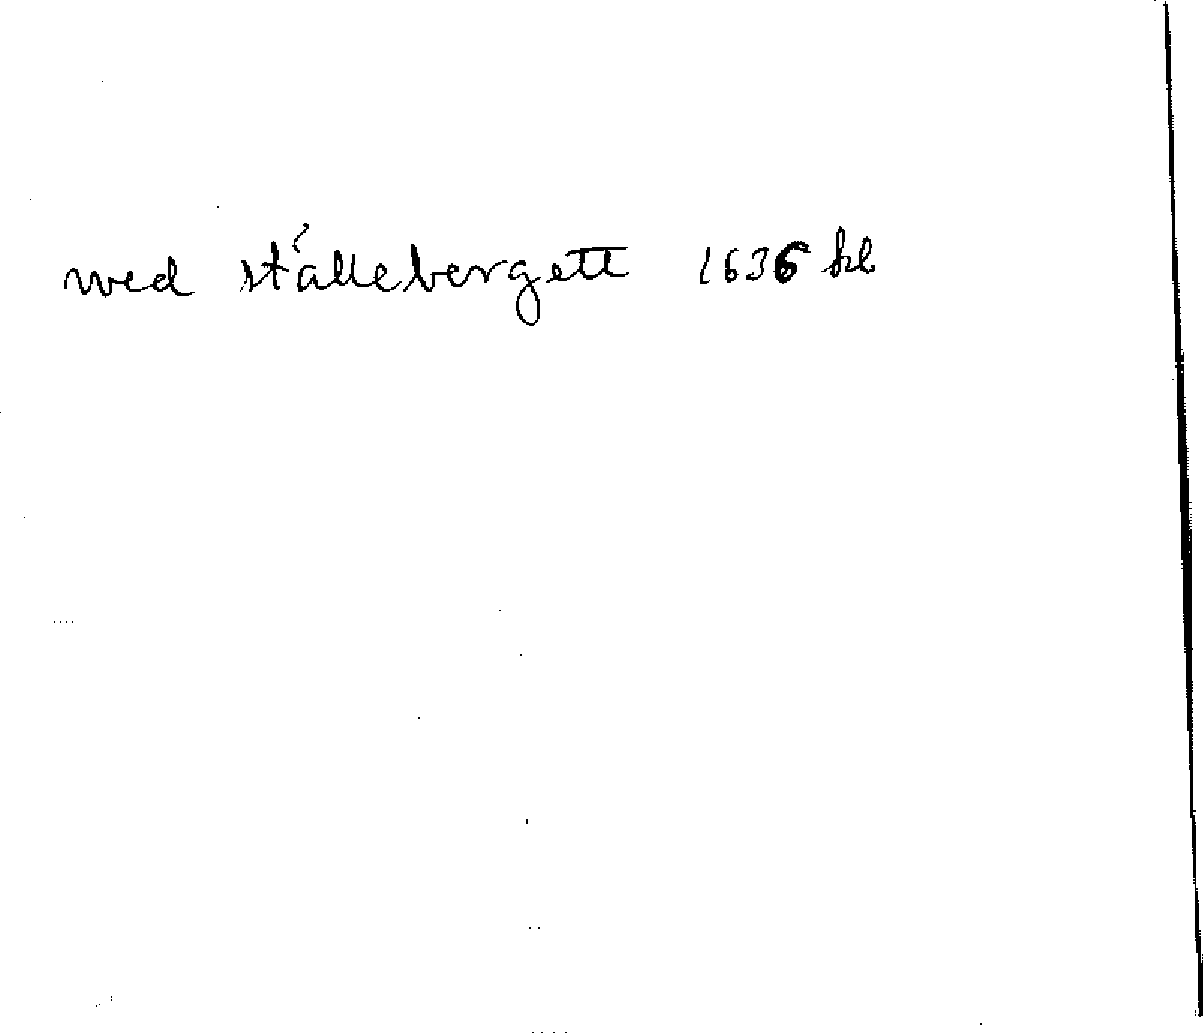 wed stállebergett 1636 hb